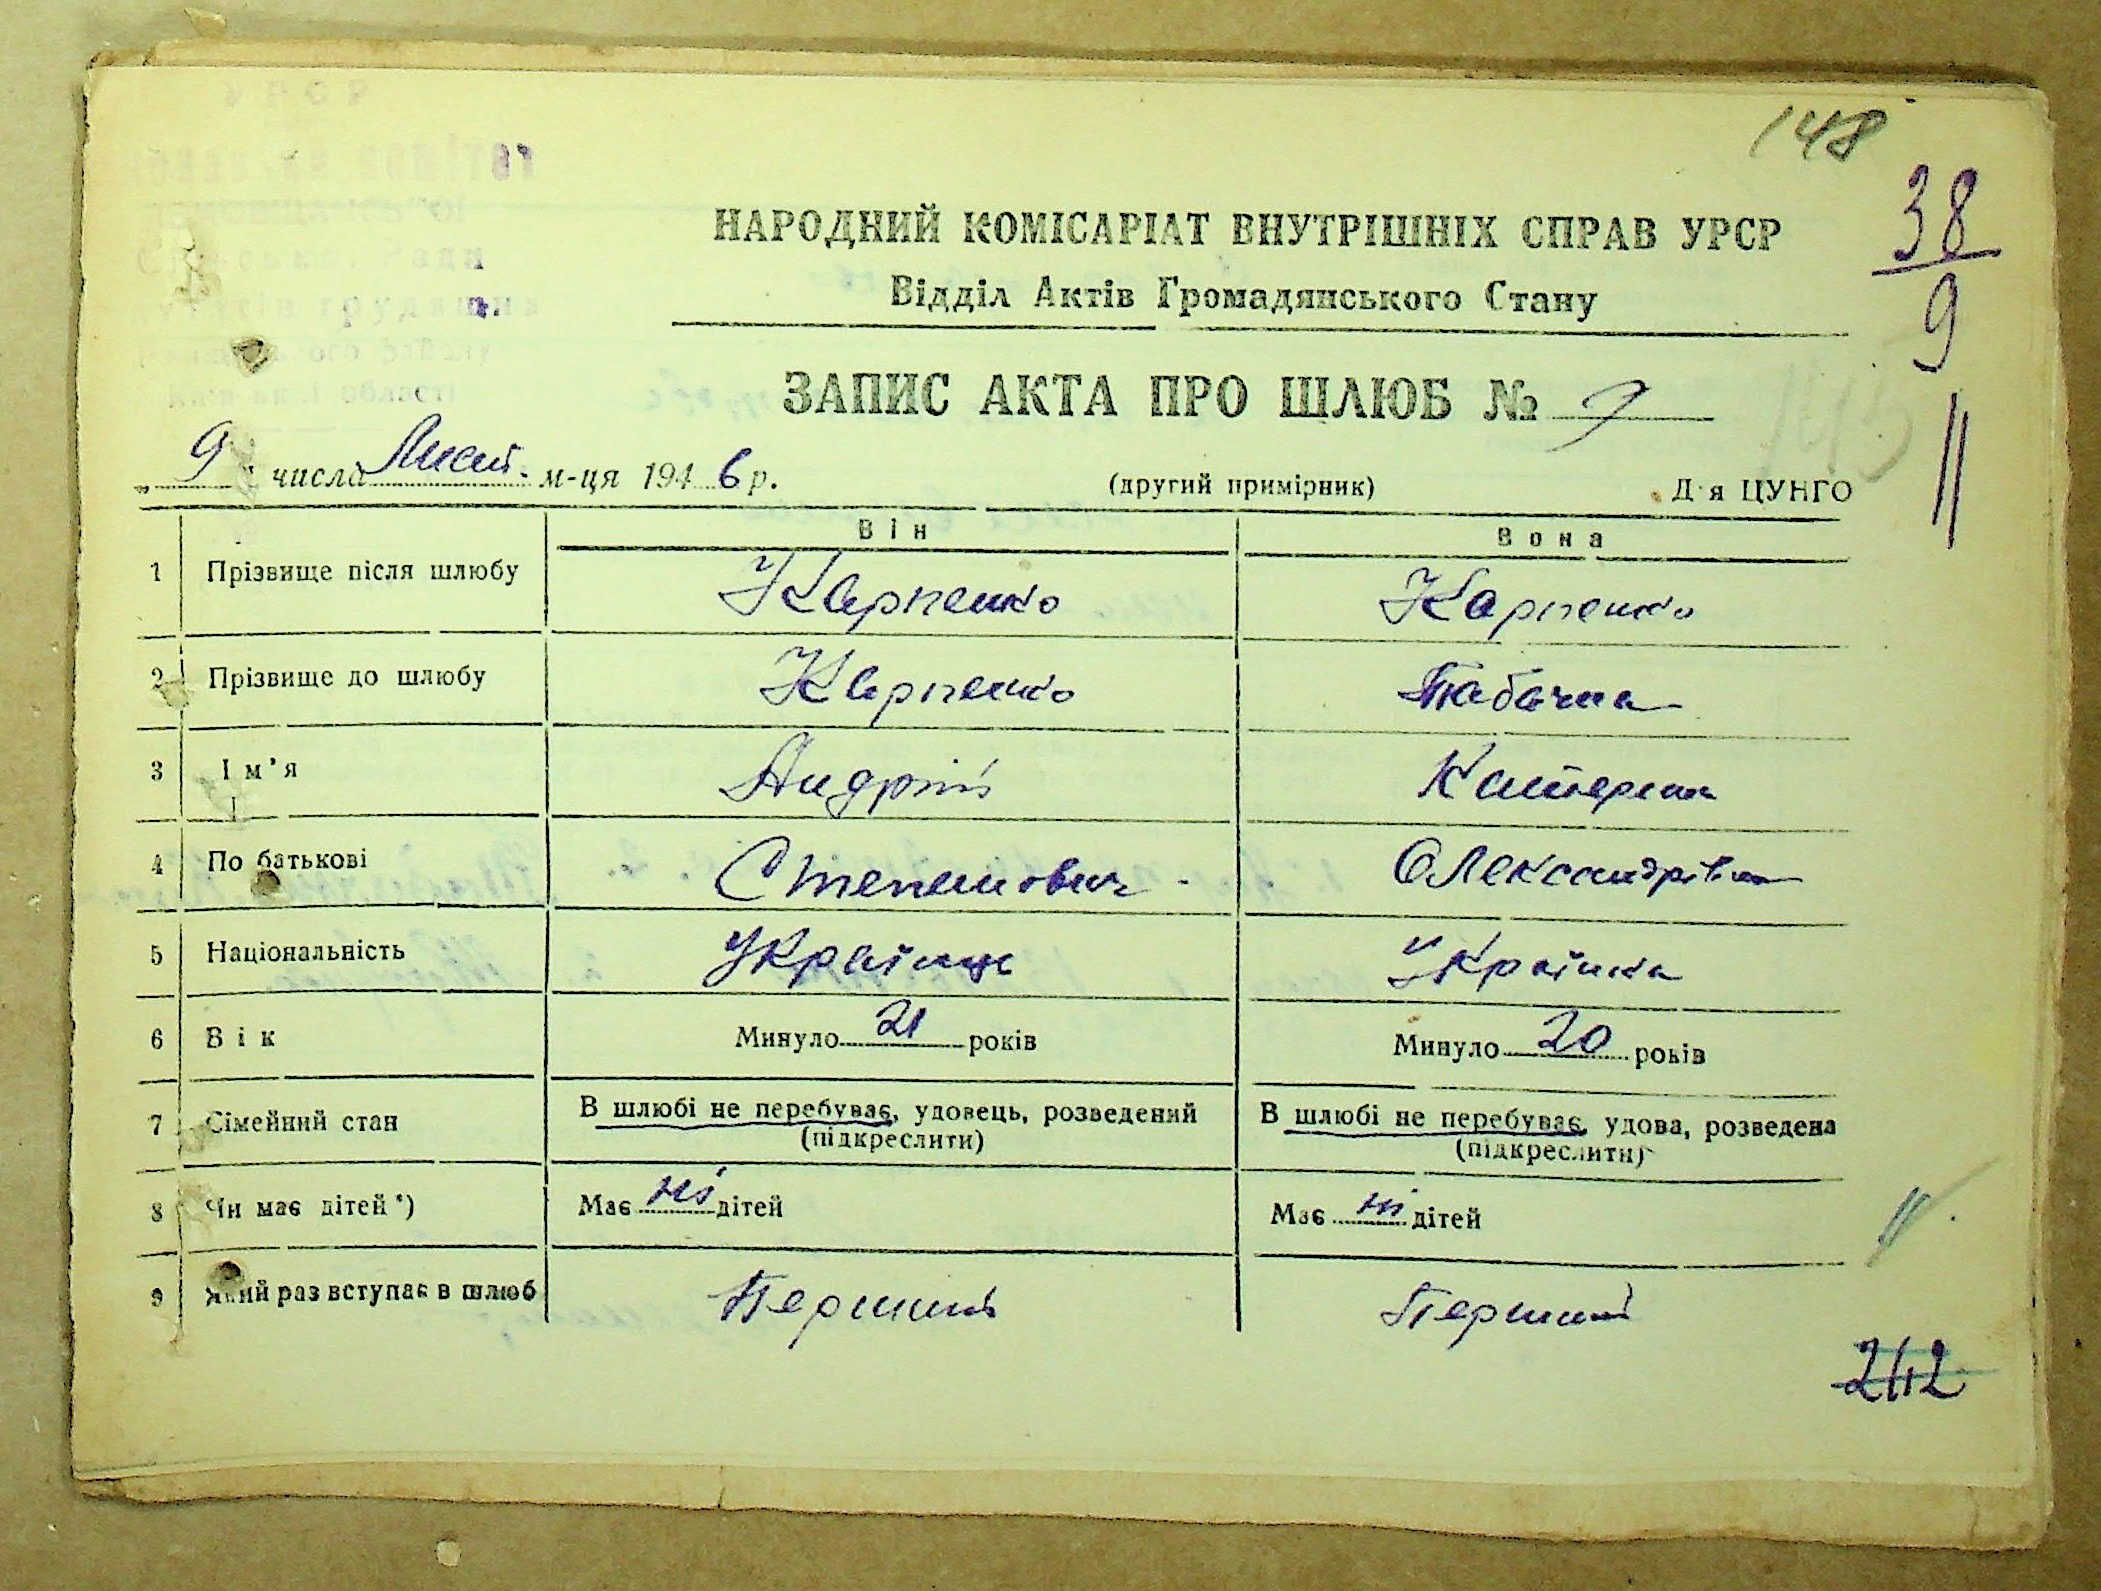 148
38
9
НАРОДНИЙ КОМІСАРІАТ ВНУТРІШНІХ СПРАВ УРСР
Відділ Актів Громадянського Стану
ЗАПИС АКТА ПРО ШЛЮБ № 9
„ 9 " числа Лист. м-ця 194 6 р. (другий примірник) Д я ЦУНГО
Він Вона
1 Прізвище після шлюбу Карпенко Карпенко
2 Прізвище до шлюбу Карпенко Табачна
3 Ім'я Андрій Катерина
4 По батькові Степанович Олександрівна
5 Національність Українець Українка
6 Вік Минуло 21 років Минуло 20 років
7 Сімейний стан В шлюбі не перебуває, удовець, розведений В шлюбі не перебуває, удова, розведена
(підкреслити) (підкреслити)
8 Чи має дітей *) Має ні дітей Має ні дітей
9 Який раз вступає в шлюб Перший Перший
242